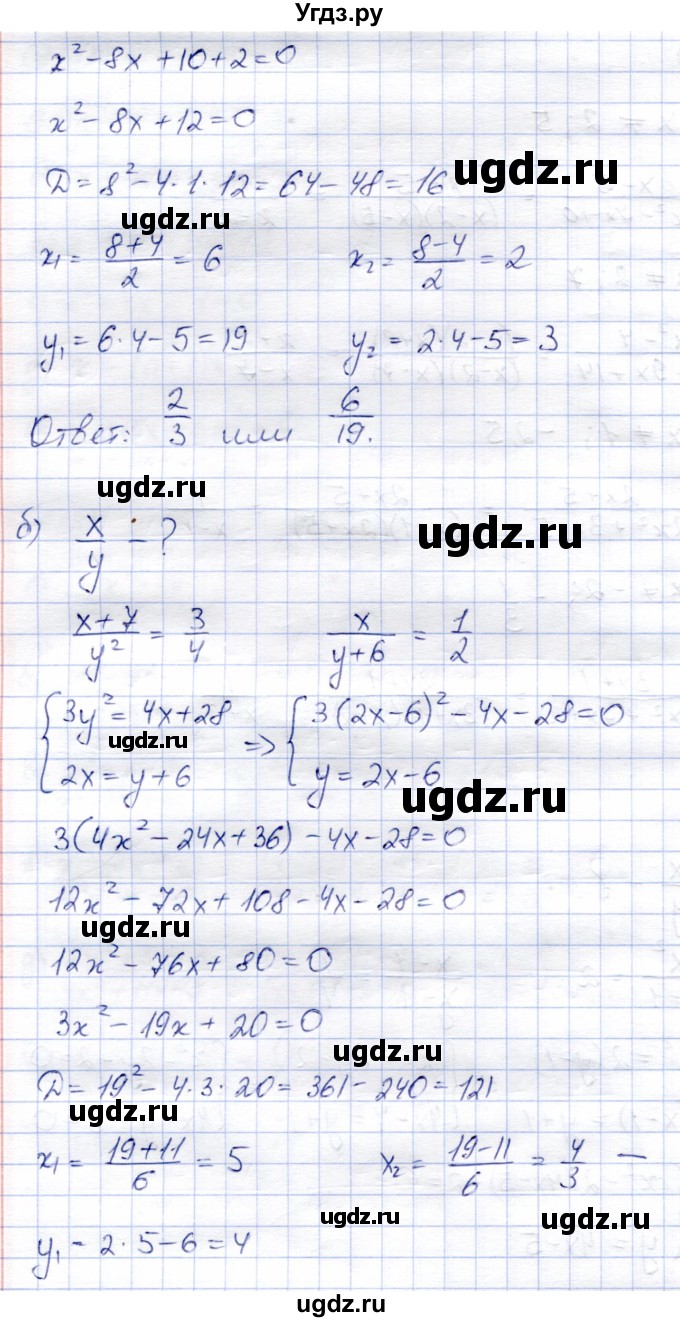 Угдз.ру
x² - 8x + 10 + 2 = 0
x² - 8x + 12 = 0
D = 8² - 4·1·12 = 64 - 48 = 16
ugdz.ru
ugdz.ru
x₁ = (8+4)/2 = 6   x₂ = (8-4)/2 = 2
y₁ = 6·4 - 5 = 19   y₂ = 2·4 - 5 = 3
Ответ: 2/3 или 6/19.
ugdz.ru
б) x/y - ?
ugdz.ru
(x+7)/y² = 3/4   x/(y+6) = 1/2
{3y² = 4x + 28 => {3(2x-6)² - 4x - 28 = 0
ugdz.ru
{2x = y + 6   {y = 2x - 6
ugdz.ru
3(4x² - 24x + 36) - 4x - 28 = 0
12x² - 72x + 108 - 4x - 28 = 0
ugdz.ru
12x² - 76x + 80 = 0
3x² - 19x + 20 = 0
ugdz.ru
D = 19² - 4·3·20 = 361 - 240 = 121
ugdz.ru
x₁ = (19+11)/6 = 5   x₂ = (19-11)/6 = 4/3 —
ugdz.ru
ugdz.ru
y₁ - 2·5 - 6 = 4
ugdz.ru